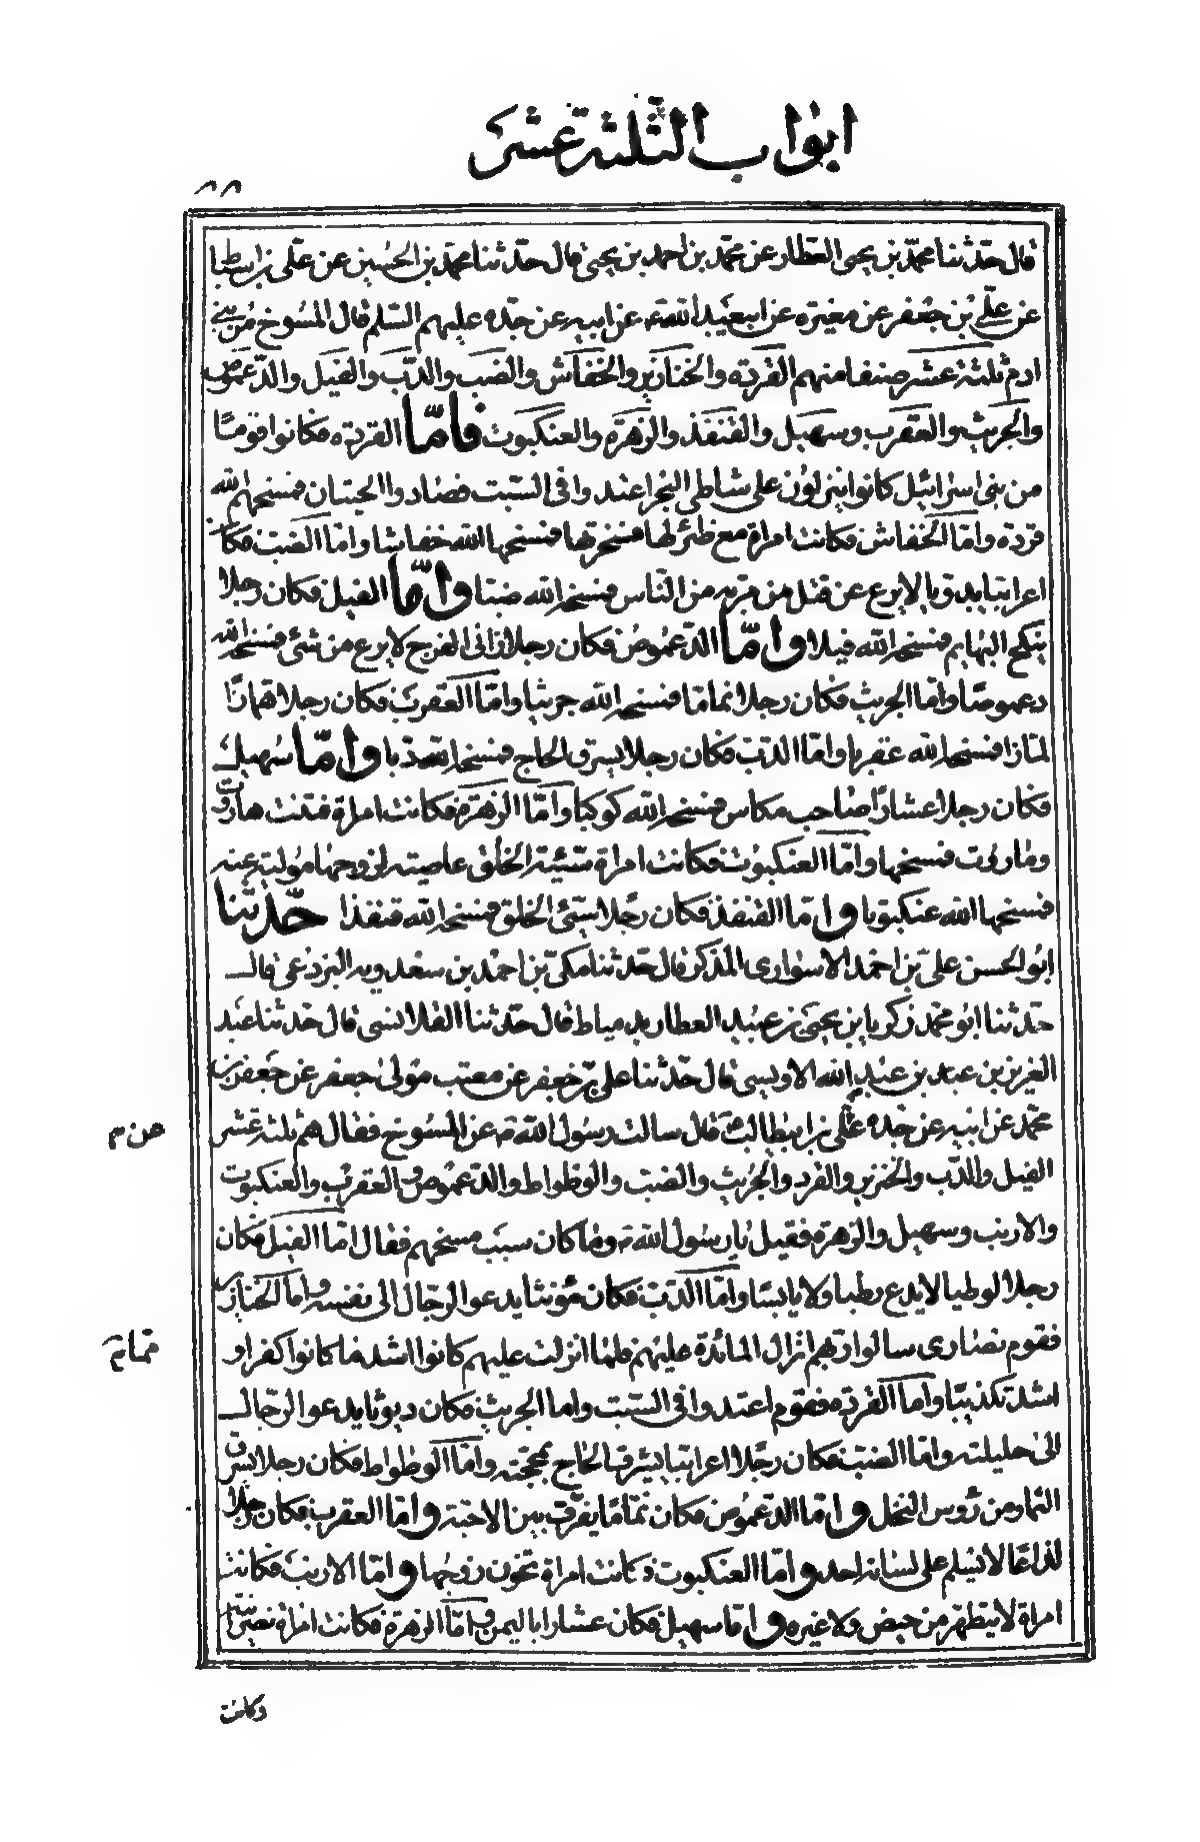 ابواب الثلثة عشر
٨٨
قال حدثنا محمد بن يحيى العطار عن محمد بن احمد بن يحيى قال حدثنا محمد بن الحسين عن علي بن اسباط
عن علي بن جعفر عن مغيره عن ابيعبد الله ع عن ابيه عن جده عليهم السلم قال المسوخ من بني
ادم ثلثة عشر صنفا منهم القردة والخنازير والخفاش والضب والدب والفيل والدعموص
والجريث والعقرب وسهيل والقنفذ والزهرة والعنكبوت فاما القردة فكانوا قوما
من بني اسرائيل كانوا ينزلون على شاطئ البحر اعتدوا في السبت فصادوا الحيتان فمسخهم الله
قردة واما الخفاش فكانت امراة مع ظئر لها فسحرتها فمسخها الله خفاشا واما الضب فكان
اعرابيا بدويا لا يرع عن قتل من مر به من الناس فمسخه الله ضبا واما الفيل فكان رجلا
ينكح البهايم فمسخه الله فيلا واما الدعموص فكان رجلا زاني الفرج لا يرع من شئ فمسخه الله
دعموصا واما الجريث فكان رجلا نماما فمسخه الله جريثا واما العقرب فكان رجلا همازا
لمازا فمسخه الله عقربا واما الدب فكان رجلا يسرق الحاج فمسخه الله دبا واما سهيل
فكان رجلا عشارا صاحب مكاس فمسخه الله كوكبا واما الزهرة فكانت امراة فتنت هاروت
وماروت فمسخها واما العنكبوت فكانت امراة سيئة الخلق عاصية لزوجها مولية عنه
فمسخها الله عنكبوتا واما القنفذ فكان رجلا سيئ الخلق فمسخه الله قنفذا حدثنا
ابو الحسن علي بن احمد الاسواري المذكر قال حدثنا مكي بن احمد بن سعدويه البرذعي قال
حدثنا ابو محمد زكريا بن يحيى بن عبيد العطار بدمياط قال حدثنا القلانسي قال حدثنا عبد
العزيز بن عبد بن عبد الله الاويسي قال حدثنا علي بن جعفر عن معتب مولى جعفر عن جعفر بن
محمد عن ابيه عن جده عن علي بن ابيطالب ع قال سالت رسول الله ص عن المسوخ فقال هم ثلثة عشر
الفيل والدب والخنزير والقرد والجريث والضب والوطواط والدعموص والعقرب والعنكبوت
والارنب وسهيل والزهرة فقيل يا رسول الله ص وما كان سبب مسخهم فقال اما الفيل فكان
رجلا لوطيا لا يدع رطبا ولا يابسا واما الدب فكان مؤنثا يدعو الرجال الى نفسه واما الخنازير
فقوم نصارى سالوا ربهم انزال المائدة عليهم فلما انزلت عليهم كانوا اشد ما كانوا كفرا و
اشد تكذيبا واما القردة فقوم اعتدوا في السبت واما الجريث فكان ديوثا يدعو الرجال
الى حليلته واما الضب فكان رجلا اعرابيا يسرق الحاج بمحجنته واما الوطواط فكان رجلا يسرق
الثمار من رؤس النخل واما الدعموص فكان نماما يفرق بين الاحبة واما العقرب فكان رجلا
لذاعا لا يسلم على لسانه احد واما العنكبوت فكانت امراة تخون زوجها واما الارنب فكانت
امراة لا يتطهر من حيض ولا غيره واما سهيل فكان عشارا باليمن واما الزهرة فكانت امراة نصرانية
عن م
وكانت